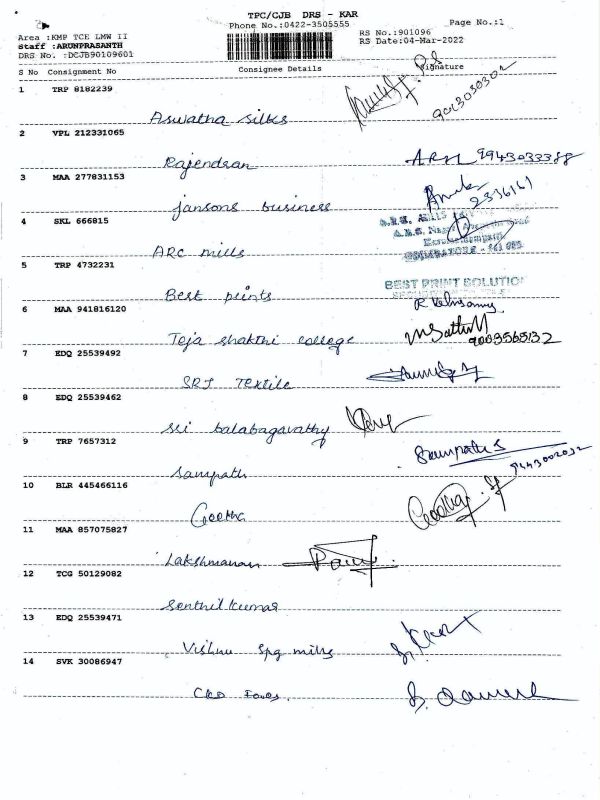 TPC/CJB DRS - KAR
Phone No.:0422-3505555
Page No.:1
Area :KMP TCE LMW II
Staff :ARUNPRASANTH
DRS No. :DCJB90109601
RS No.:901096
RS Date:04-Mar-2022
S No Consignment No Consignee Details Signature
1 TRP 8182239
Aswatha silks
9013030302
2 VPL 212331065
Rajendran
9943033388
3 MAA 277831153
jansons business
2336161
4 SKL 666815
ARC mills
COIMBATORE
5 TRP 4732231
Best prints
BEST PRINT SOLUTION
6 MAA 941816120
Teja shakthi college
9003565132
7 EDQ 25539492
SRJ Textile
8 EDQ 25539462
sri balabagavathy
9 TRP 7657312
Sampath
Sampath S
9443002032
10 BLR 445466116
Geetha
Geetha
11 MAA 857075827
Lakshmanan
12 TCG 50129082
Senthil kumar
13 EDQ 25539471
Vishnu Spg mills
14 SVK 30086947